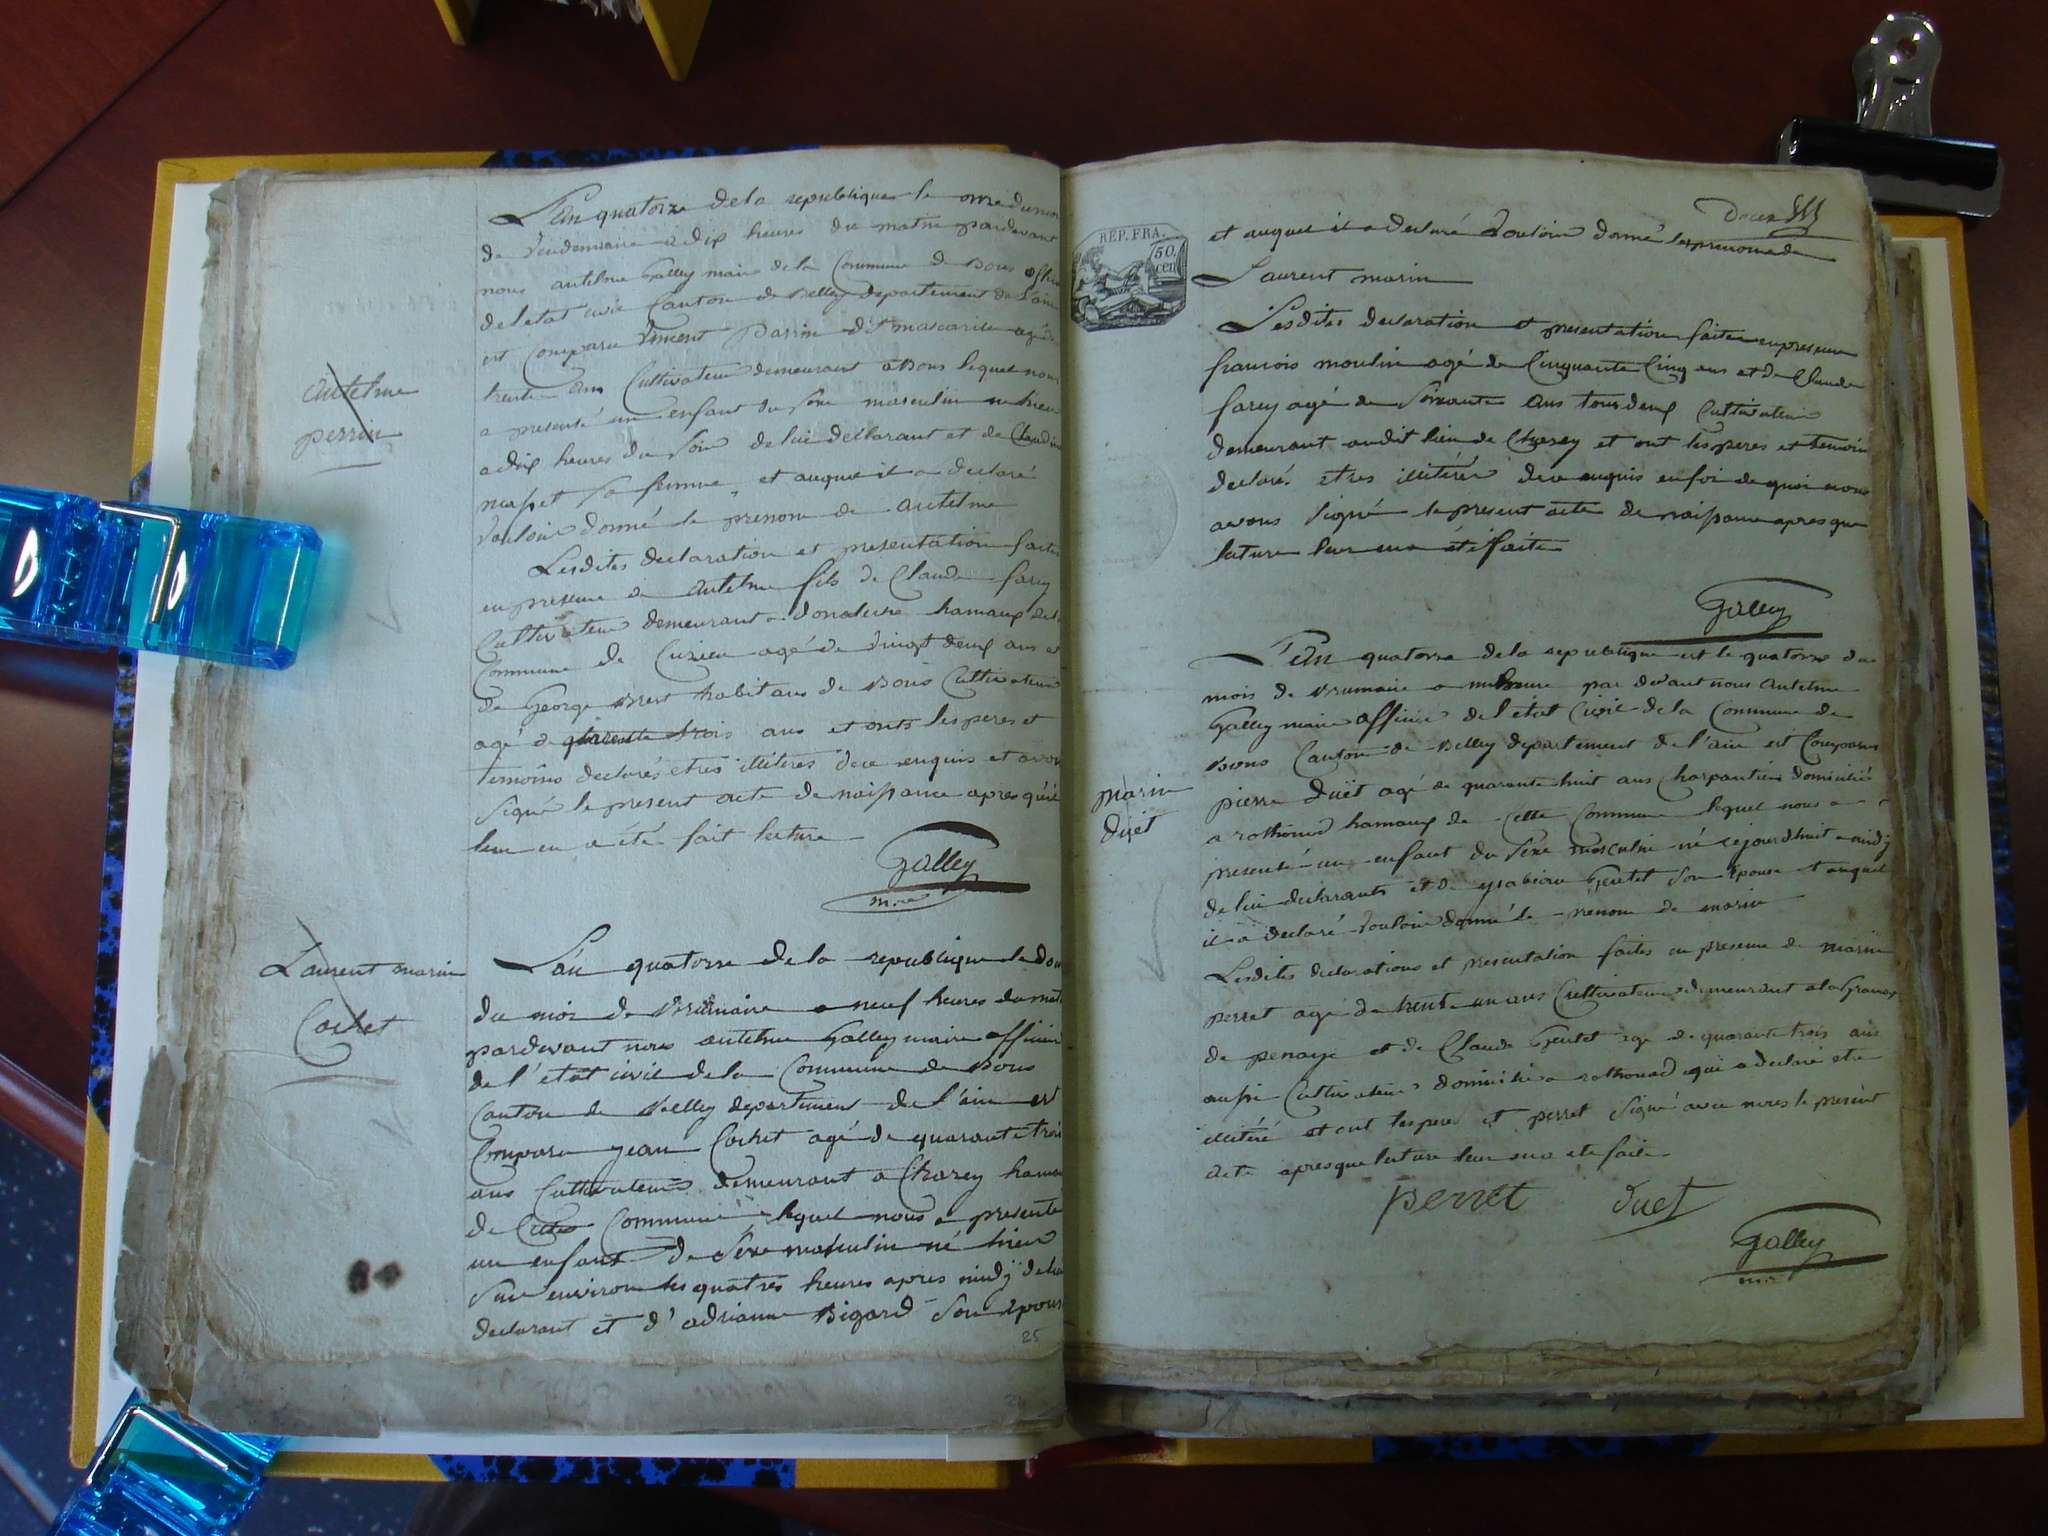 L'an quatorze de la republique le onze du mois
de vendemiaire a dix heures du matin pardevant
nous antelme Galley maire de la Commune de Bons officier
de l'etat civil Canton de Belley departement de l'ain
est Comparu vincent Perrin dit mascarile agé de
trente ans Cultivateur demeurant a Bons lequel nous
a presenté un enfant du sexe masculin né hier
a dix heures du soir de lui declarant et de Claudine
sa femme, et auquel il a declaré
vouloir donné le prenom de antelme
antelme
perrin
Lesdites declaration et presentation faites
en presence de antelme fils de Claude farey
Cultivateur demeurant a hamaux de la
Commune de Cuzieu agé de vingt deux ans et
de George Brest habitans de Bons Cultivateur
agé de quarante trois ans et onts les peres et
temoins declarés etres illiteres de ce enquis et avons
signé le present acte de naissance apres qu'il
leur en a été fait lecture
Galley
m.re
Laurent marin
Cochet
L'an quatorse de la republique le douze
du mois de Brumaire a neuf heures du matin
pardevant nous antelme Galley maire officier
de l'etat civil de la Commune de Bons
Canton de Belley departement de l'ain est
Comparu jean Cochet agé de quarante trois
ans Cultivateur demeurant a Chazey hamau
de Cette Commune lequel nous a presente
un enfant de sexe masculin né hier
sur environ les quatres heures apres midÿ de lui
declarant et d'adrianne Bigard son epouse
25
douze
REP. FRA.
50
cen
et auquel il a declaré vouloir donné les prenom de
Laurent marin
Lesdites declaration et presentation faites en presence
francois moulin agé de Cinquante Cinq ans et de Claude
farey agé de soixante ans tous deux Cultivateur
demeurant audit lieu de Chazey et ont les peres et temoin
declarés etres illiterés de ce enquis en foi de quoi nous
avons signé le present acte de naissance apres que
lecture leur en a été faite
Galley
L'an quatorse de la republique est le quatorze du
mois de Brumaire a par devant nous Antelme
Galley maire officier de l'état Civil de la Commune de
Bons Canton de Belley departement de l'ain est Comparus
pierre duët agé de quarante huit ans Charpantier domicilié
a rothonod hamaux de Cette Commune lequel nous a
marin
duët
presenté un enfant du sexe masculin né cejourdhuit a midÿ
de lui declarants et de ysabeau Gentet son epouse et auquel
il a declaré vouloir donné le prenom de marin
Lesdites declarations et presentation faites en presence de marin
perret agé de trente un ans Cultivateur demeurant a la Grange
de penaye et de Claude Gentet agé de quarante trois ans
aussi Cultivateur domicilié a rothonod qui a declaré etre
illitéré et ont les pere et perret signé avec nous le présent
acte apres que lecture leur en a ete faite
perret duet
Galley
m.re